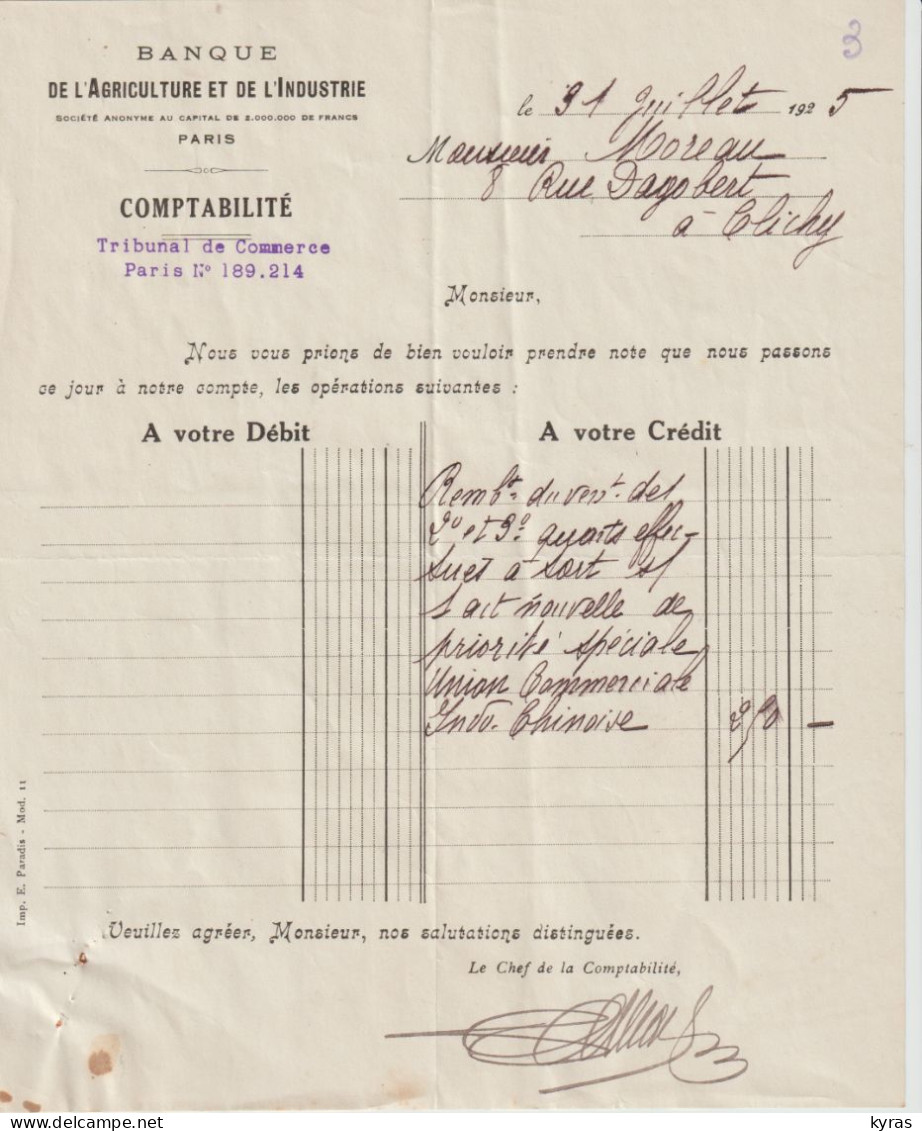 3
BANQUE
DE L'AGRICULTURE ET DE L'INDUSTRIE
SOCIÉTÉ ANONYME AU CAPITAL DE 2.000.000 DE FRANCS
PARIS
COMPTABILITÉ
Tribunal de Commerce
Paris No 189.214
le 31 Juillet 1925
Monsieur Moreau
8 Rue Dagobert
à Clichy
Monsieur,
Nous vous prions de bien vouloir prendre note que nous passons
ce jour à notre compte, les opérations suivantes :
A votre Débit
A votre Crédit
Rembt du verst des
2o et 3o quarts effec-
tués à tort s/
1 act nouvelle de
priorité spéciale
Union Commerciale
Indo-Chinoise 250 —
Veuillez agréer, Monsieur, nos salutations distinguées.
Le Chef de la Comptabilité,
Imp. E. Paradis - Mod. 11
kyras